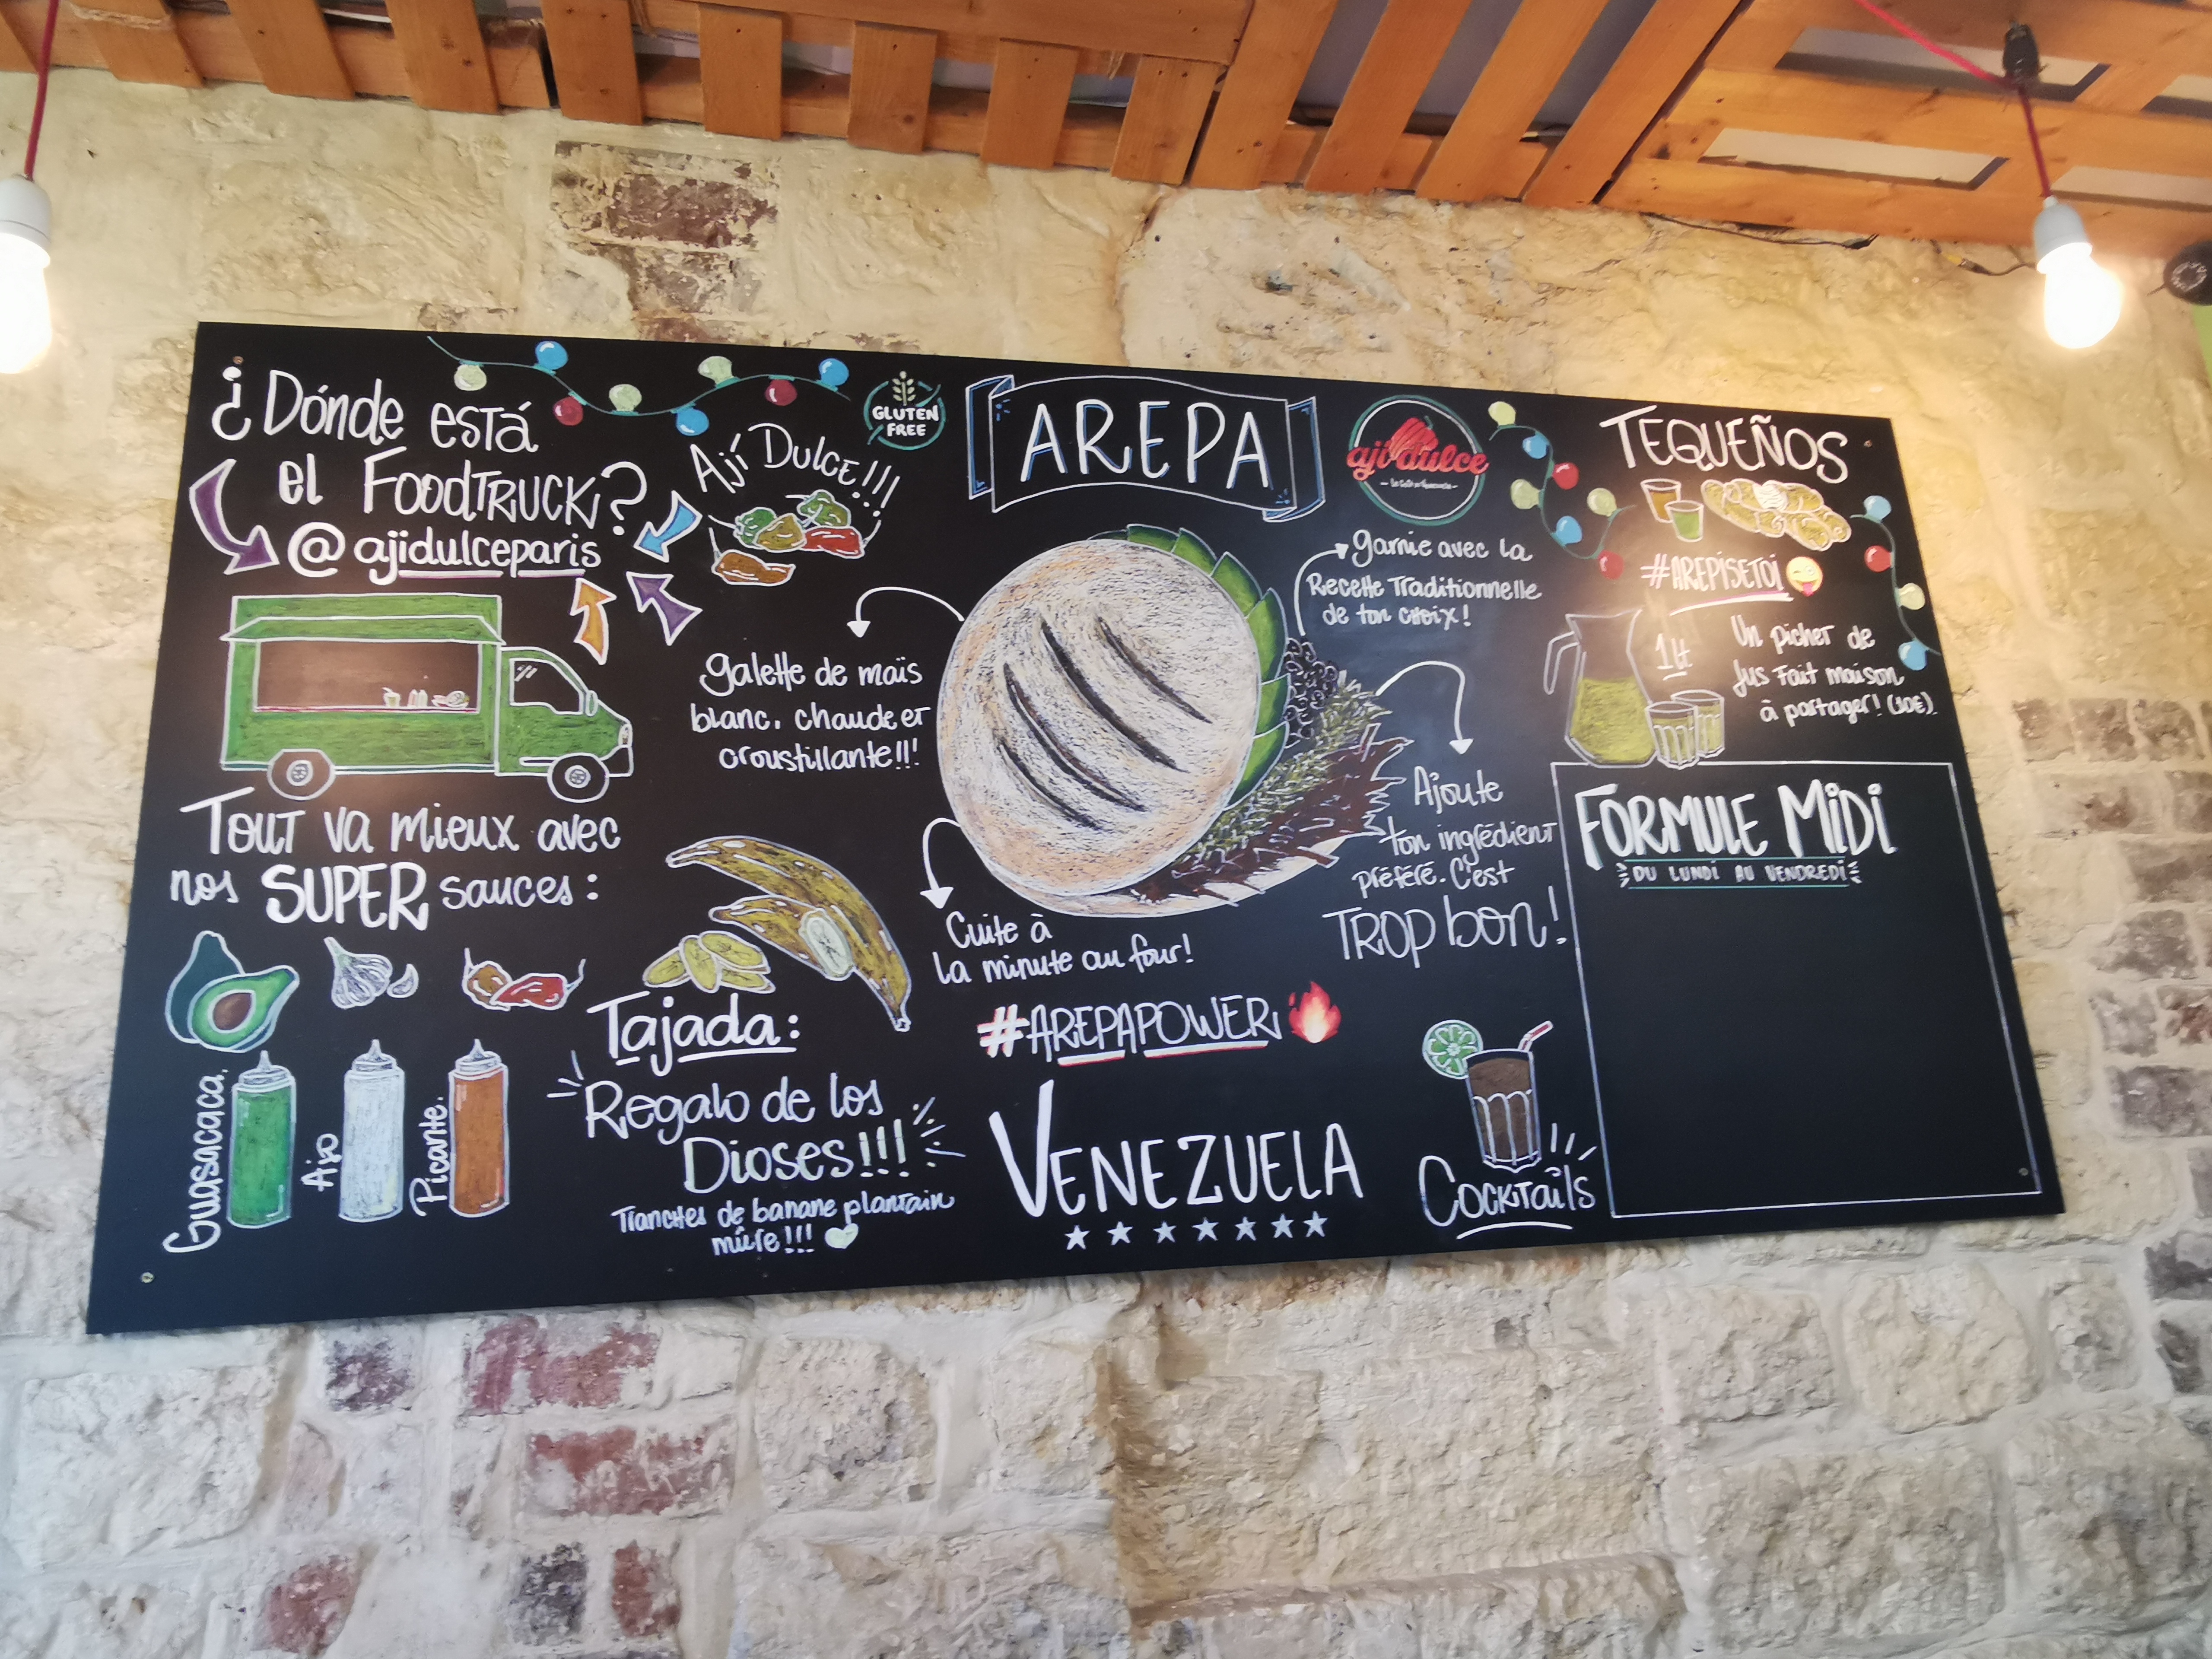 ¿Dónde está
el FOODTRUCK?
@ajidulceparis
Ají DULCE!!!
GLUTEN
FREE
AREPA
aji dulce
TEQUEÑOS
#AREPISETOI
1Lt
Un picher de
Jus Fait maison
à partager! (10€).
garnie avec la
Recette Traditionnelle
de ton choix!
galette de maïs
blanc, chaude et
croustillante!!!
Ajoute
ton ingrédient
préféré. C'est
TROP bon!
Cuite à
la minute au four!
#AREPAPOWER
VENEZUELA
COCKTAiLS
FORMULE MiDi
DU LUNDI AU VENDREDI
Tout va mieux avec
nos SUPER sauces:
Guasacaca.
Ajo
Picante.
Tajada:
Regalo de los
Dioses!!!
Tranches de banane plantain
mûre!!!